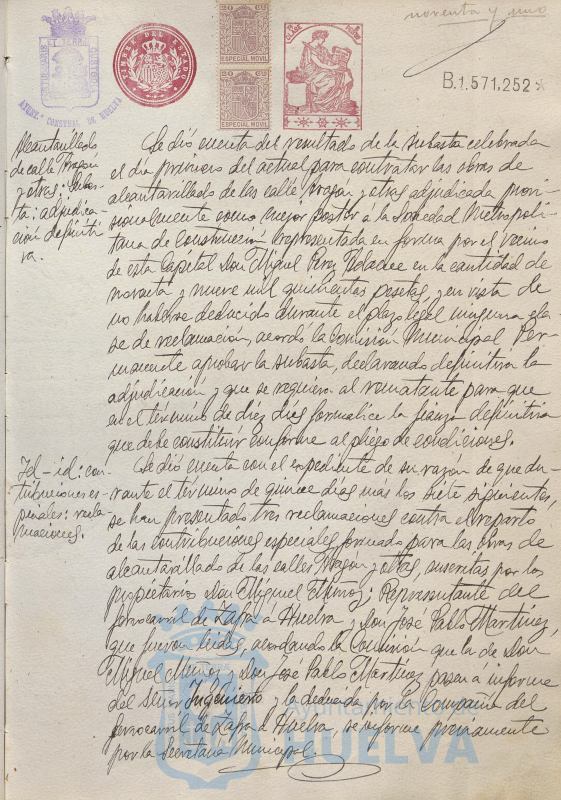 noventa y uno
AYUNT.º CONSTNAL. DE HUELVA
TIMBRE DEL ESTADO
20 20
ESPECIAL MOVIL
20 20
ESPECIAL MOVIL
CLASE
B.1.571.252
Alcantarillado
de calle Aragon
y otras: Subas-
ta: adjudica-
cion definiti-
va.
Se dió cuenta del resultado de la subasta celebrada
el dia primero del actual para contratar las obras de
alcantarillado de las calle Aragon y otras, adjudicada provi-
sionalmente como mejor postor á la Sociedad Metropoli-
tana de Construcción representada en forma por el vecino
de esta Capital Don Miguel Perez en la cantidad de
noventa y nueve mil quinientas pesetas, y en vista de
no haberse deducido durante el plazo legal ninguna cla-
se de reclamacion, acordó la Comisión Municipal Per-
manente aprobar la subasta, declarando definitiva la
adjudicacion y que se requiera al rematante para que
en el término de diez dias formalice la fianza definitiva
que debe constituir conforme al pliego de condiciones.
Id - id: con-
tribuciones es-
peciales: recla-
maciones.
Se dió cuenta con el expediente de su razón de que du-
rante el término de quince dias más los siete siguientes,
se han presentado tres reclamaciones contra el reparto
de las contribuciones especiales formado para las obras de
alcantarillado de las calles Aragon y otras, suscritas por los
propietarios Don Miguel Muñoz; Representante del
ferrocarril de Zafra á Huelva y Don José Pablo Martinez,
que fueron leidas, acordando la Comisión que la de Don
Miguel Muñoz y Don José Pablo Martinez pasen á informe
del Señor Ingeniero y la deducida por la Compañia del
ferrocarril de Zafra á Huelva, se informe previamente
por la Secretaria Municipal.
Ayuntamiento de
HUELVA